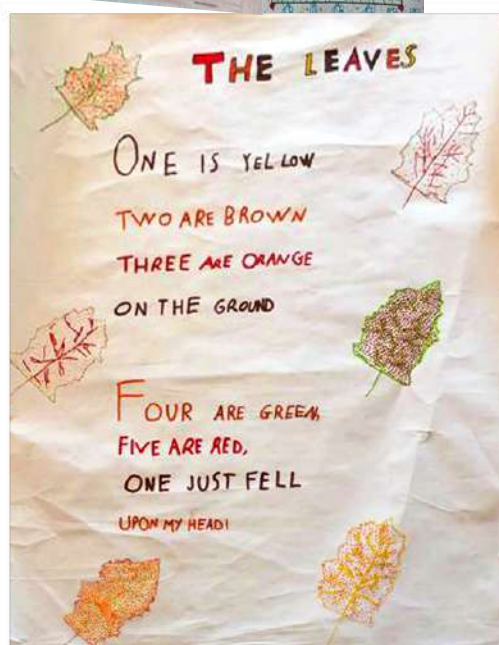 THE LEAVES
ONE IS YELLOW
TWO ARE BROWN
THREE ARE ORANGE
ON THE GROUND
FOUR ARE GREEN,
FIVE ARE RED,
ONE JUST FELL
UPON MY HEAD!